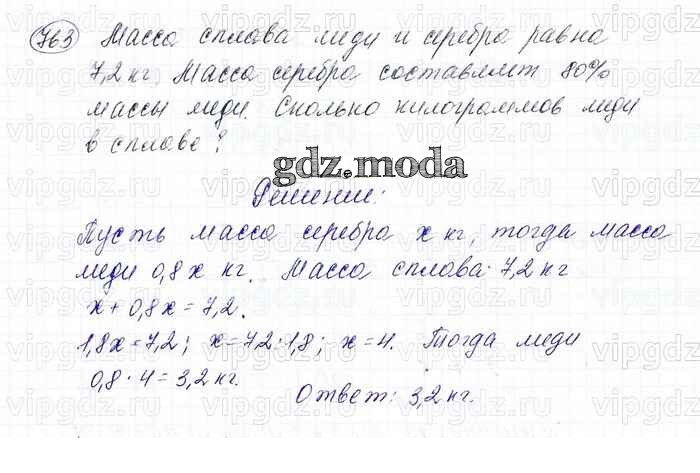 763 Масса сплава меди и серебра равна
7,2 кг. Масса серебра составляет 80%
массы меди. Сколько килограммов меди
в сплаве?
gdz.moda
Решение:
Пусть масса серебра x кг, тогда масса
меди 0,8x кг. Масса сплава: 7,2 кг
x + 0,8x = 7,2.
1,8x = 7,2; x = 7,2 : 1,8; x = 4. Тогда меди
0,8 · 4 = 3,2 кг.
Ответ: 3,2 кг.